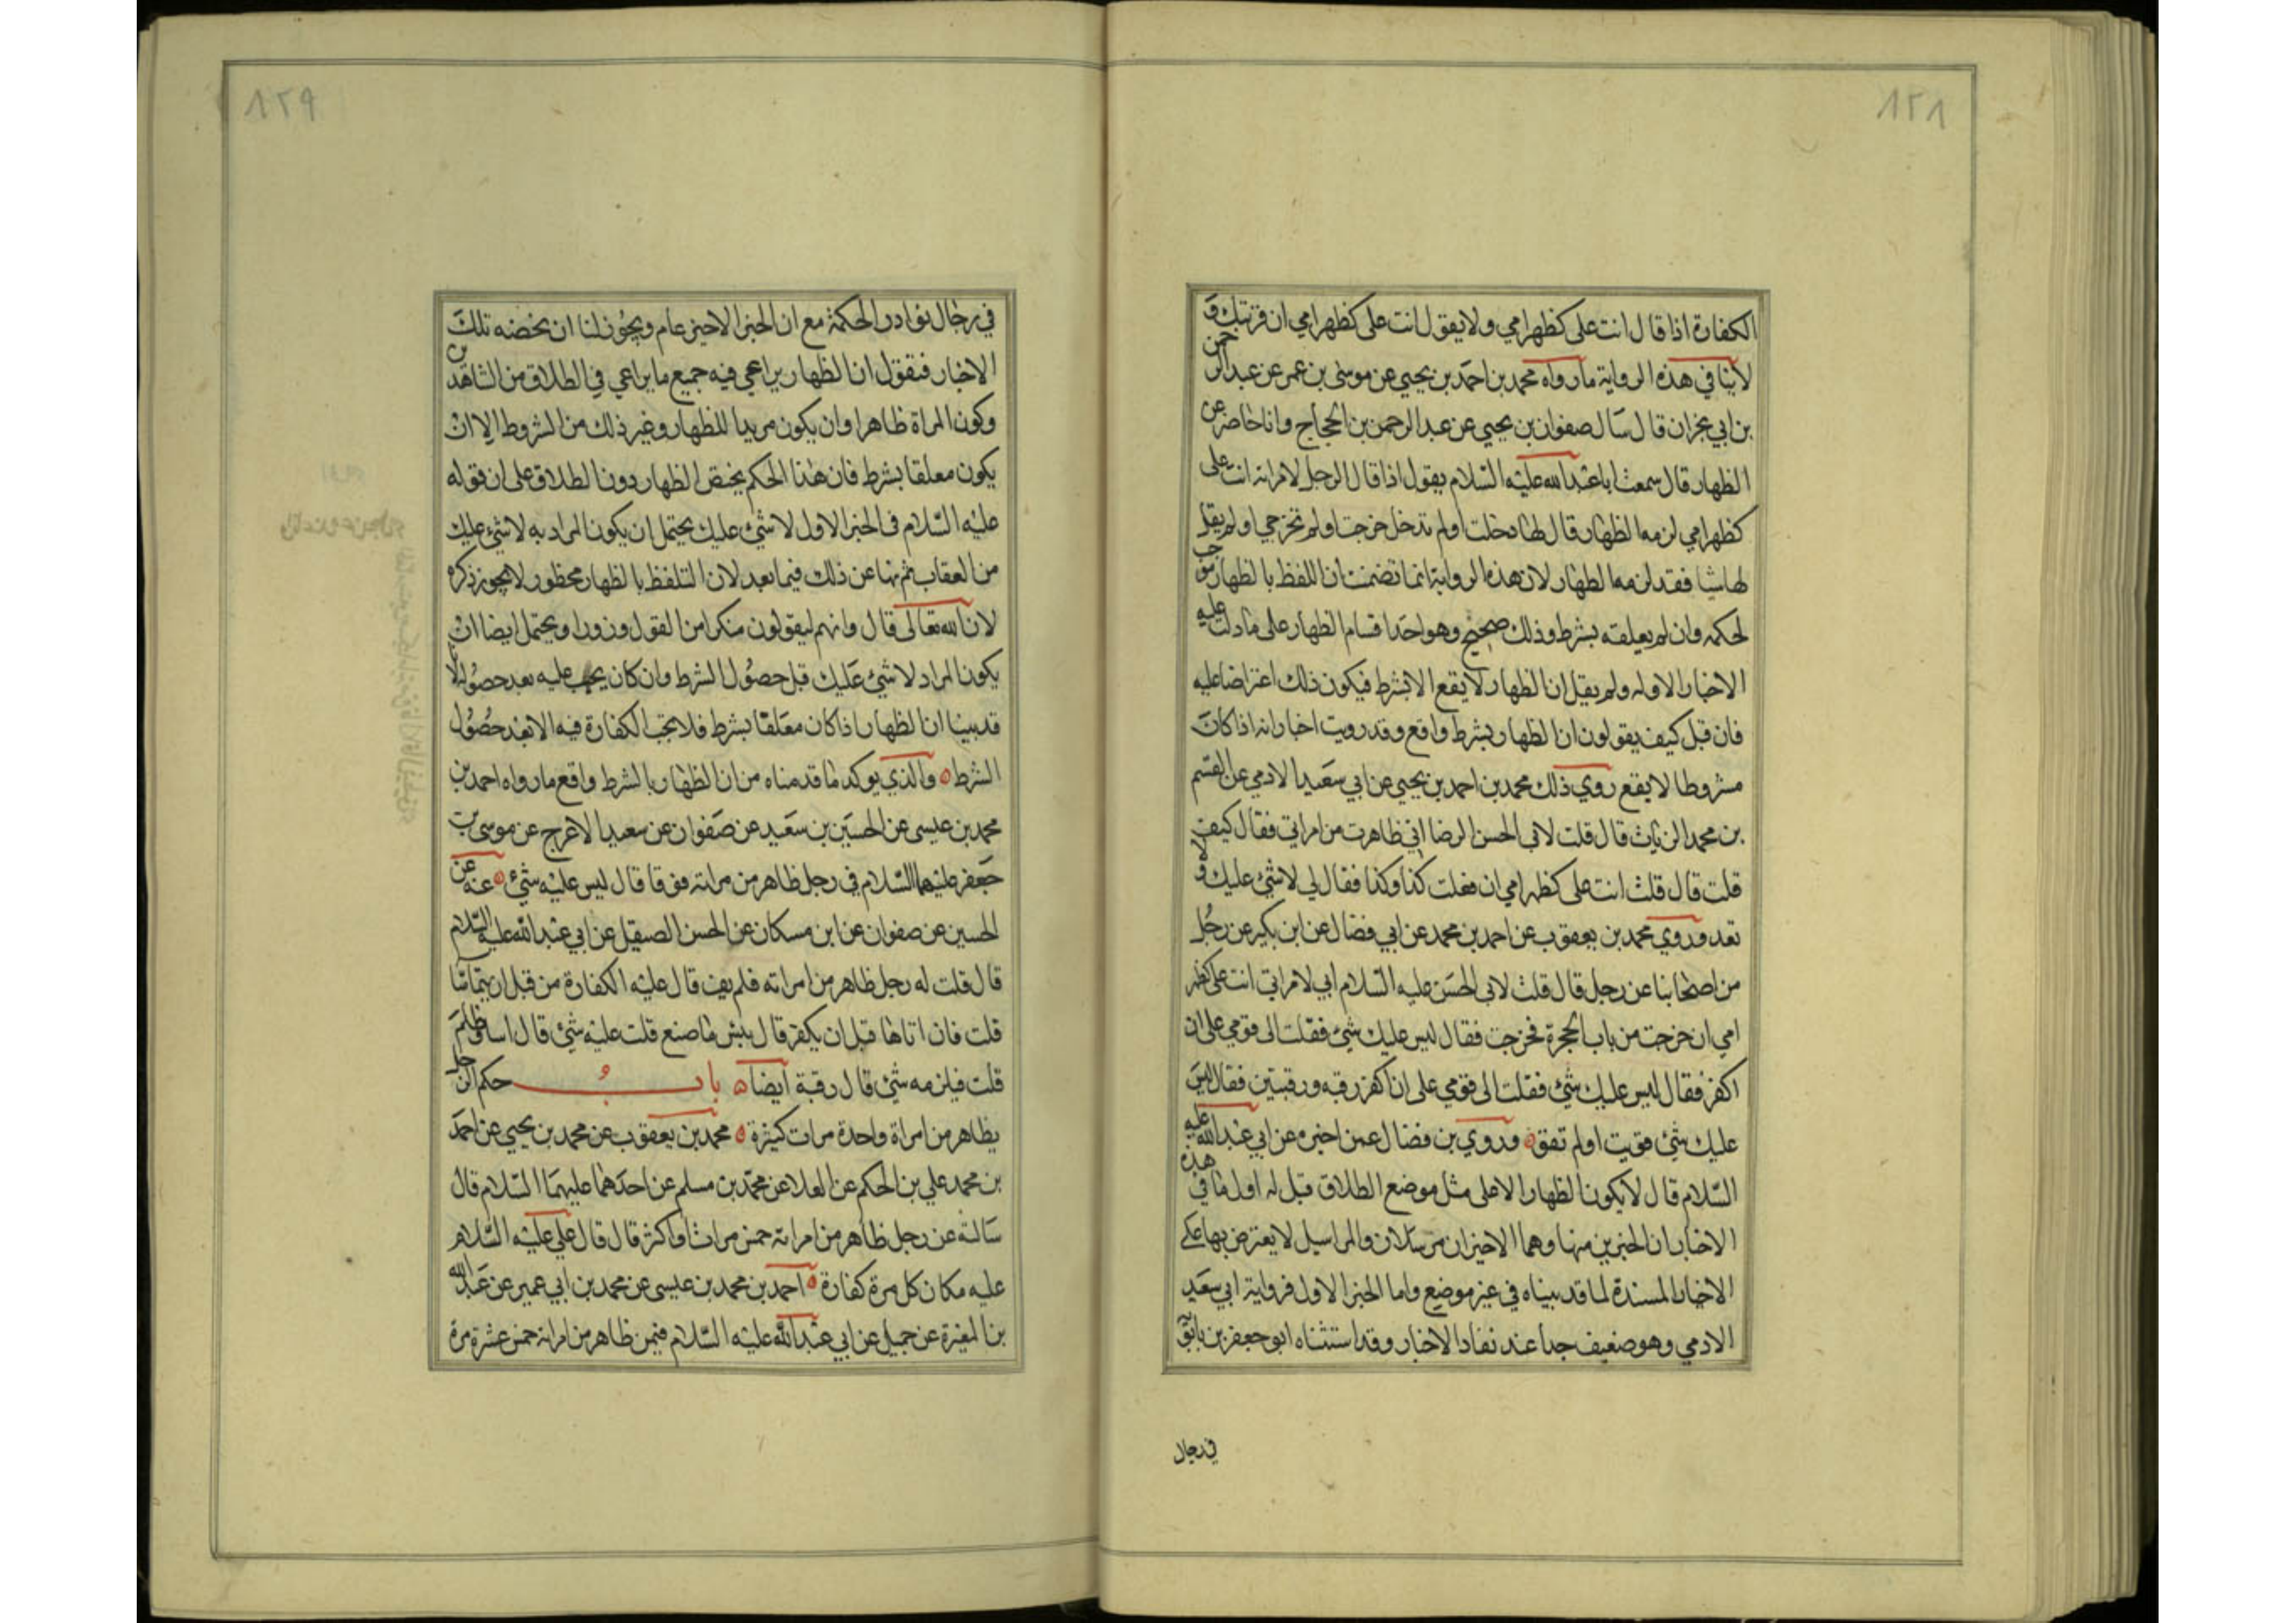 ٨٢٨
الكفارة اذا قال انت على كظهر امي ولا يقول انت على كظهر امي ان قربتك و
لا ينافي هذه الرواية ما رواه محمد بن احمد بن يحيى عن موسى بن عمر عن عبد الرحمن
بن ابي نجران قال سال صفوان بن يحيى عن عبد الرحمن بن الحجاج وانا حاضر عن
الظهار قال سمعت ابا عبد الله عليه السلام يقول اذا قال الرجل لامراته انت على
كظهر امي لزمه الظهار قال لها دخلت او لم تدخل خرجت او لم تخرجي او لم يقل
لها شيا فقد لزمه الظهار لان هذه الرواية انما تضمنت ان اللفظ بالظهار موجب
لحكمه وان لم يعلقه بشرط وذلك صحيح وهو احد اقسام الظهار على ما دلت عليه
الاخبار الاوله ولم يقل ان الظهار لا يقع الا بشرط فيكون ذلك اعتراضا عليه
فان قيل كيف يقولون ان الظهار بشرط واقع وقد رويت اخبار انه اذا كان
مشروطا لا يقع روي ذلك محمد بن احمد بن يحيى عن ابي سعيد الادمي عن القسم
بن محمد الزيات قال قلت لابي الحسن الرضا اني ظاهرت من امراتي فقال كيف
قلت قال قلت انت على كظهر امي ان فعلت كذا وكذا فقال لي لا شئ عليك ولا
تعد وروي محمد بن يعقوب عن احمد بن محمد عن ابي فضال عن ابن بكير عن رجل
من اصحابنا عن رجل قال قلت لابي الحسن عليه السلام ابي لامراتي انت على كظهر
امي ان خرجت من باب الحجرة فخرجت فقال ليس عليك شئ فقلت الى قومي على ان
اكفر فقال ليس عليك شئ فقلت الى قومي على ان اكفر رقبه ورقبتين فقال ليس
عليك شئ قويت او لم تقو وروي بن فضال عمن اخبره عن ابي عبد الله عليه
السلام قال لا يكون الظهار الا على مثل موضع الطلاق قيل له اول ما في هذه
الاخبار ان الخبرين منها وهما الاخيران مرسلان والمراسيل لا يعترض بها على
الاخبار المسندة لما قد بيناه في غير موضع واما الخبر الاول فرواية ابي سعيد
الادمي وهو ضعيف جدا عند نقاد الاخبار وقد استثناه ابو جعفر بن بابويه
في رجال
٨٢٩
في رجال نوادر الحكمة مع ان الخبر الاخير عام ويجوز لنا ان نخضه تلك
الاخبار فنقول ان الظهار يراعي فيه جميع ما يراعي في الطلاق من الشاهدين
وكون المراة ظاهرا وان يكون مريدا للظهار وغير ذلك من الشروط الا ان
يكون معلقا بشرط فان هذا الحكم يختص الظهار دون الطلاق على ان قوله
عليه السلام في الخبر الاول لا شئ عليك يحتمل ان يكون المراد به لا شئ عليك
من العقاب ثم نها عن ذلك فيما بعد لان التلفظ بالظهار محظور لا يجوز ذكره
لان الله تعالى قال وانهم ليقولون منكرا من القول وزورا ويحتمل ايضا ان
يكون المراد لا شئ عليك قبل حصول الشرط وان كان يجب عليه بعد حصوله
قد بينا ان الظهار اذا كان معلقا بشرط فلا يجب الكفارة فيه الا بعد حصول
الشرط والذي يوكد ما قدمناه من ان الظهار بالشرط واقع ما رواه احمد بن
محمد بن عيسى عن الحسين بن سعيد عن صفوان عن سعيد الاعرج عن موسى بن
جعفر عليهما السلام في رجل ظاهر من مراته فوقا قال ليس عليه شئ عنه عن
الحسين عن صفوان عن ابن مسكان عن الحسن الصيقل عن ابي عبد الله عليه السلام
قال قلت له رجل ظاهر من امراته فلم يف قال عليه الكفارة من قبل ان يتماسا
قلت فان اتاها قبل ان يكفر قال بئس ما صنع قلت عليه شئ قال اسا وظلم
قلت فيلزمه شئ قال رقبة ايضا باب حكم الرجل
يظاهر من امراة واحدة مرات كثيرة محمد بن يعقوب عن محمد بن يحيى عن احمد
بن محمد علي بن الحكم عن العلا عن محمد بن مسلم عن احدهما عليهما السلام قال
سالته عن رجل ظاهر من امراته خمس مرات او اكثر قال قال علي عليه السلام
عليه مكان كل مرة كفارة احمد بن محمد بن عيسى عن محمد بن ابي عمير عن عبد الله
بن المغيرة عن جميل عن ابي عبد الله عليه السلام فيمن ظاهر من امراته خمس عشرة مرة